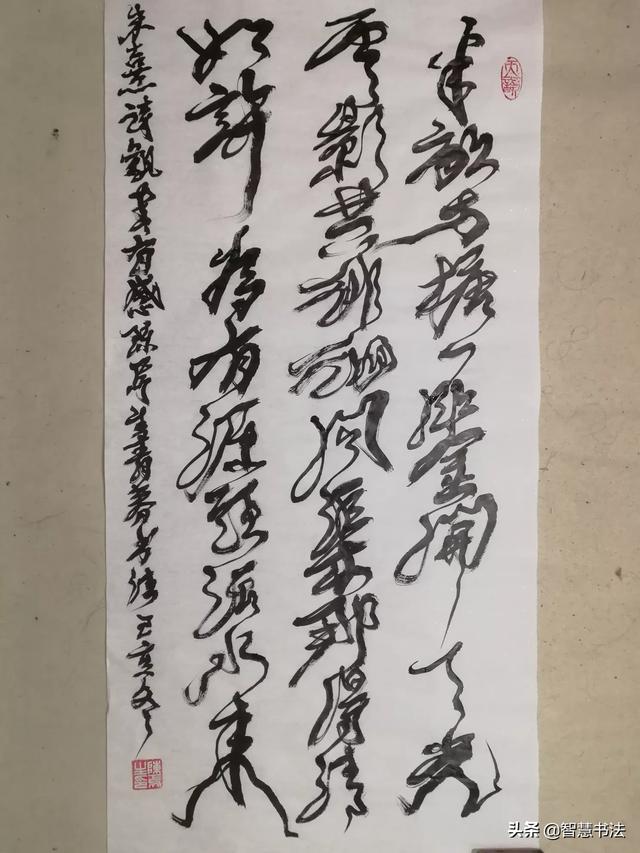 半畝方塘一鑑開天光
雲影共徘徊問渠那得清
如許為有源頭活水來
朱熹詩觀書有感
头条 @智慧书法